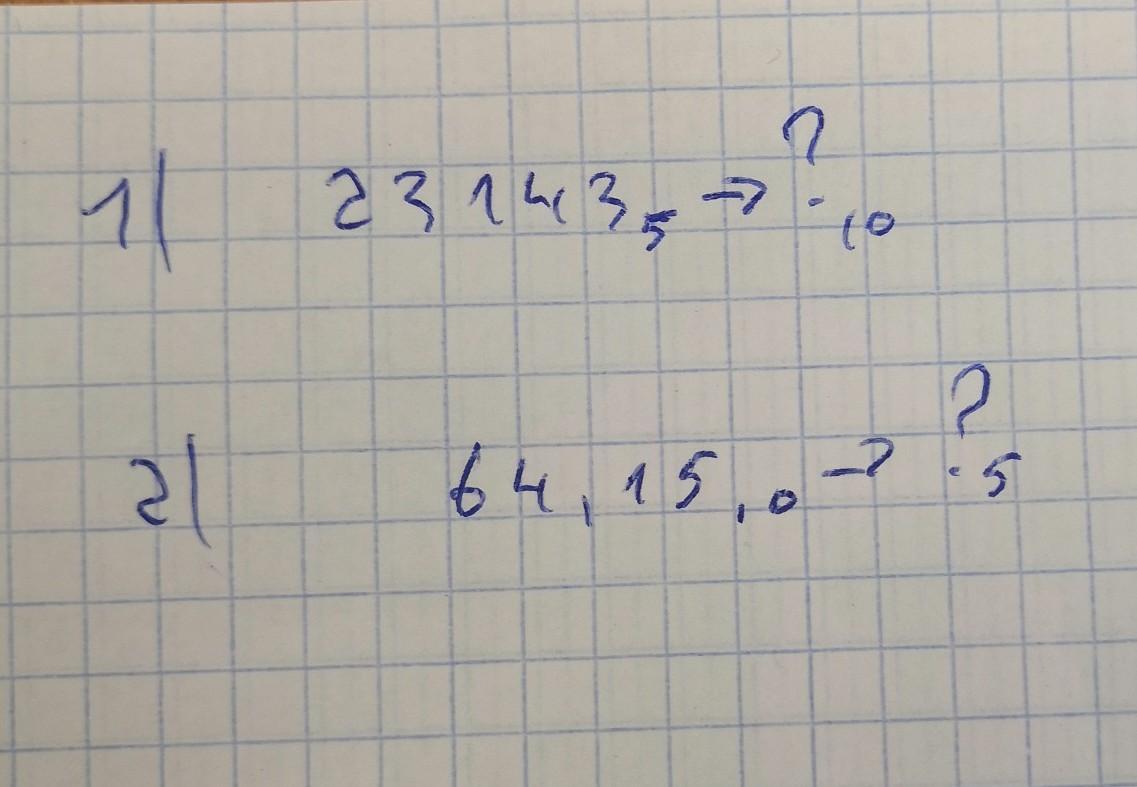 1) 23143₅ → ?₁₀
2) 64,15₁₀ → ?₅